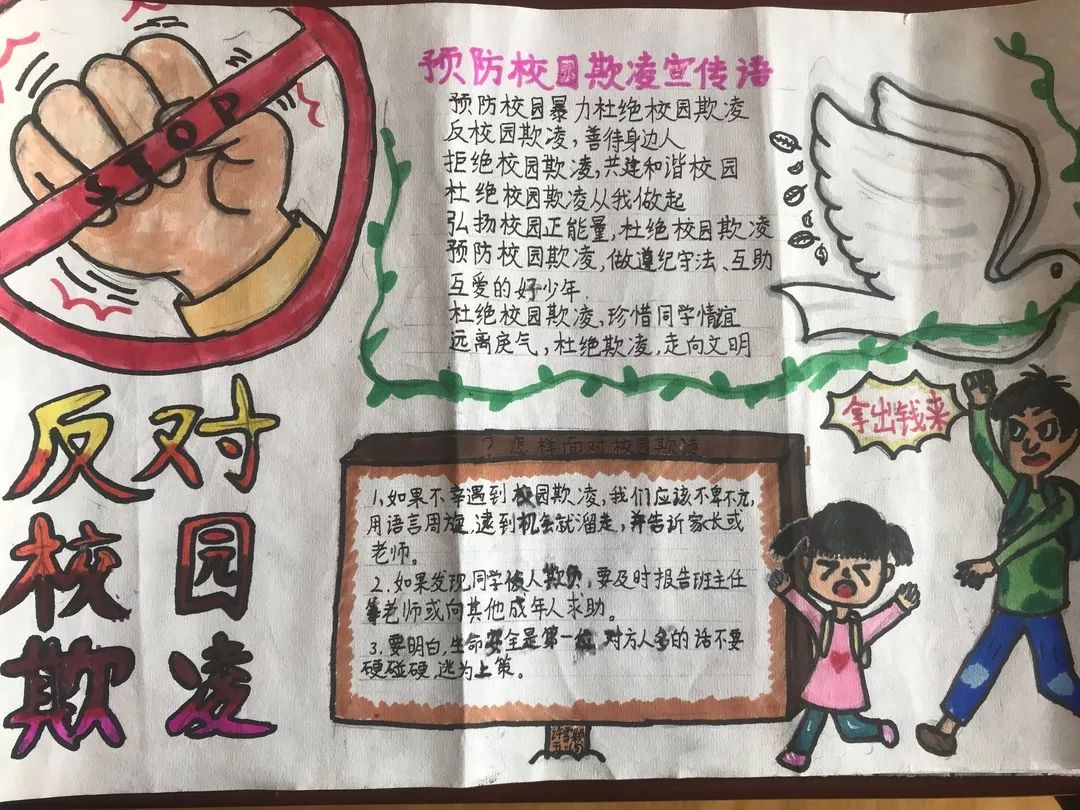 STOP
预防校园欺凌宣传语
预防校园暴力杜绝校园欺凌
反校园欺凌,善待身边人
拒绝校园欺凌,共建和谐校园
杜绝校园欺凌从我做起
弘扬校园正能量,杜绝校园欺凌
预防校园欺凌,做遵纪守法、互助
互爱的好少年.
杜绝校园欺凌,珍惜同学情谊
远离戾气,杜绝欺凌,走向文明
拿出钱来
反对
校园
欺凌
?怎样面对校园欺凌
1、如果不幸遇到校园欺凌,我们应该不卑不亢,
用语言周旋,逮到机会就溜走,并告诉家长或
老师。
2、如果发现同学被人欺负,要及时报告班主任
等老师或向其他成年人求助。
3、要明白,生命安全是第一位 对方人多的话不要
硬碰硬,逃为上策。